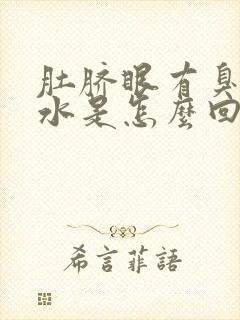 肚脐眼有臭
水是怎麼回
希言菲語